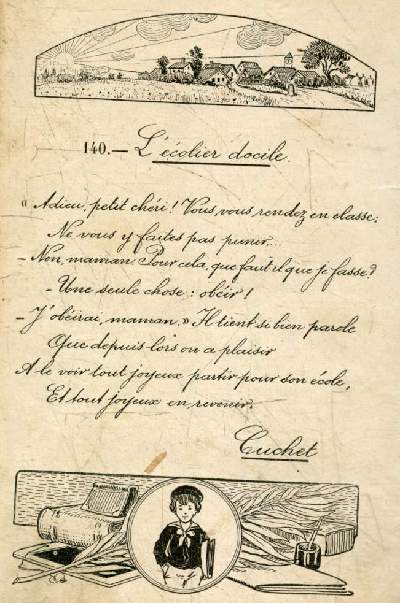 140.— L'écolier docile.
« Adieu, petit chéri ! Vous vous rendez en classe :
Ne vous y faites pas punir.
– Non, maman. Pour cela, que faut-il que je fasse ?
– Une seule chose : obéir !
– J'obéirai, maman. » Il tient si bien parole
Que depuis lors on a plaisir
A le voir tout joyeux partir pour son école,
Et tout joyeux en revenir.
Cuchet